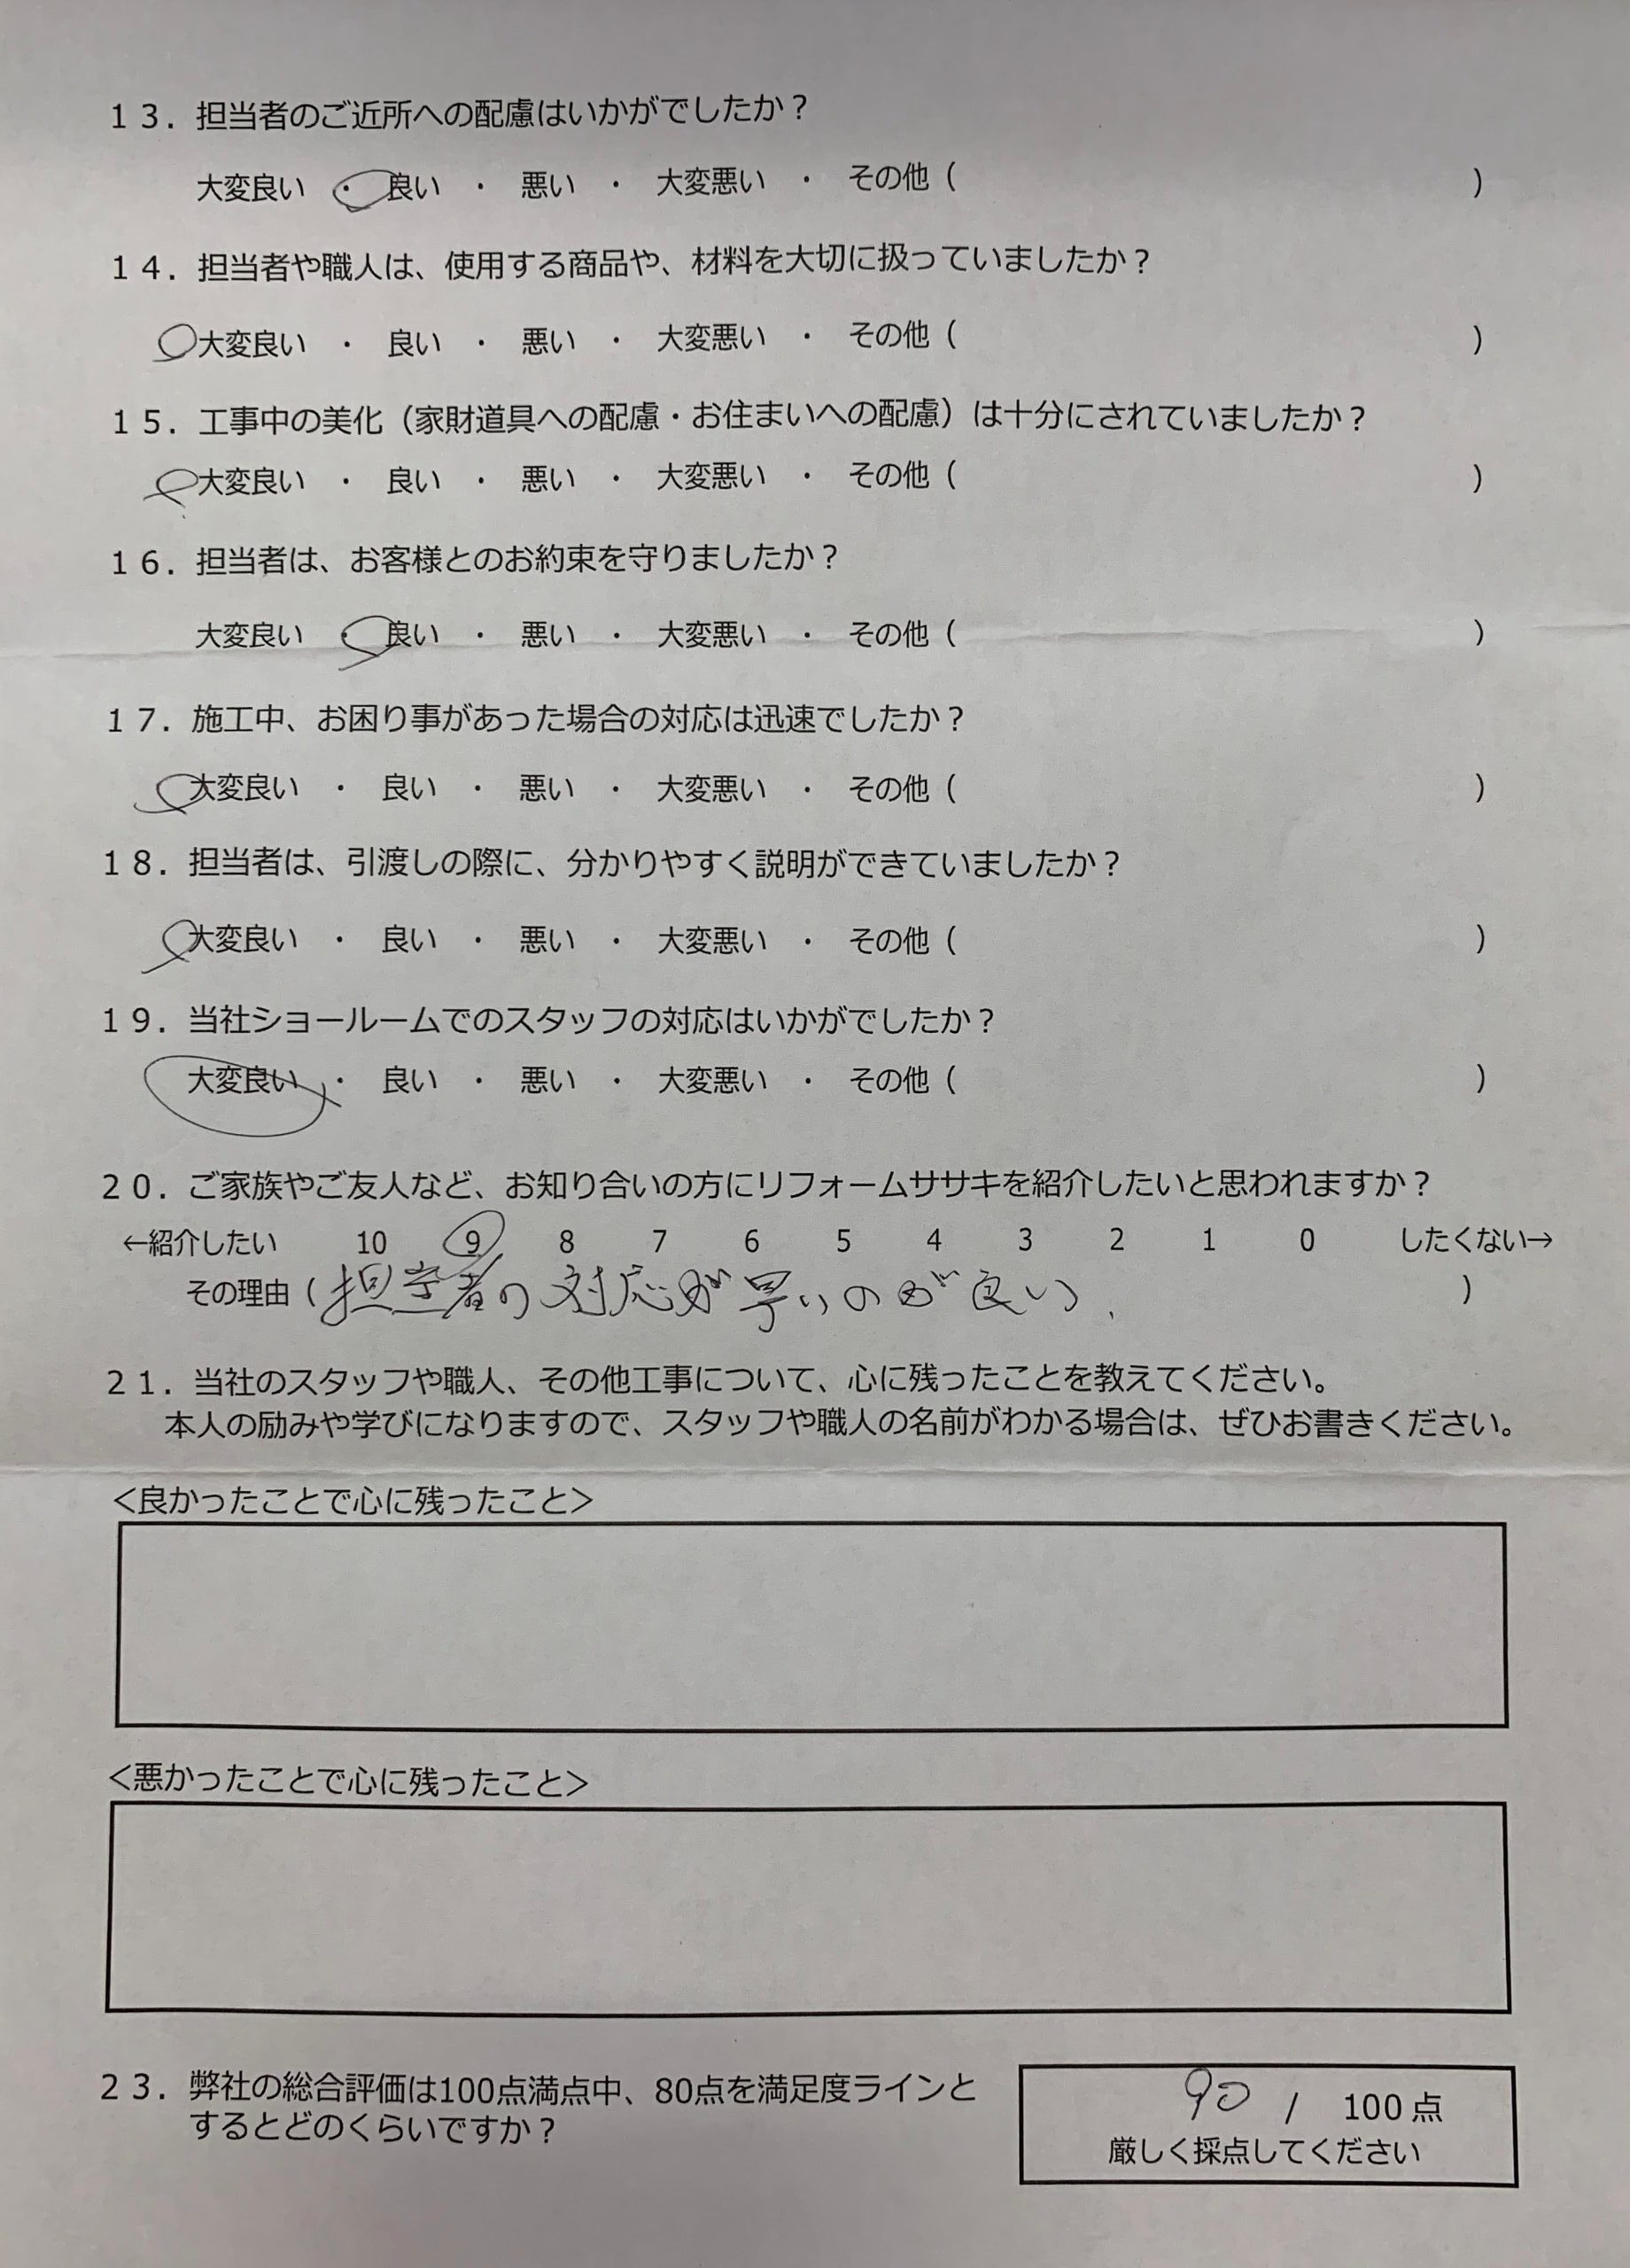 １３．担当者のご近所への配慮はいかがでしたか？
大変良い ・ 良い ・ 悪い ・ 大変悪い ・ その他（ ）
１４．担当者や職人は、使用する商品や、材料を大切に扱っていましたか？
大変良い ・ 良い ・ 悪い ・ 大変悪い ・ その他（ ）
１５．工事中の美化（家財道具への配慮・お住まいへの配慮）は十分にされていましたか？
大変良い ・ 良い ・ 悪い ・ 大変悪い ・ その他（ ）
１６．担当者は、お客様とのお約束を守りましたか？
大変良い ・ 良い ・ 悪い ・ 大変悪い ・ その他（ ）
１７．施工中、お困り事があった場合の対応は迅速でしたか？
大変良い ・ 良い ・ 悪い ・ 大変悪い ・ その他（ ）
１８．担当者は、引渡しの際に、分かりやすく説明ができていましたか？
大変良い ・ 良い ・ 悪い ・ 大変悪い ・ その他（ ）
１９．当社ショールームでのスタッフの対応はいかがでしたか？
大変良い ・ 良い ・ 悪い ・ 大変悪い ・ その他（ ）
２０．ご家族やご友人など、お知り合いの方にリフォームササキを紹介したいと思われますか？
←紹介したい 10 9 8 7 6 5 4 3 2 1 0 したくない→
その理由（担当者の対応が早いのが良い、）
２１．当社のスタッフや職人、その他工事について、心に残ったことを教えてください。
本人の励みや学びになりますので、スタッフや職人の名前がわかる場合は、ぜひお書きください。
＜良かったことで心に残ったこと＞
＜悪かったことで心に残ったこと＞
２３．弊社の総合評価は100点満点中、80点を満足度ラインと
するとどのくらいですか？
90 / 100点
厳しく採点してください